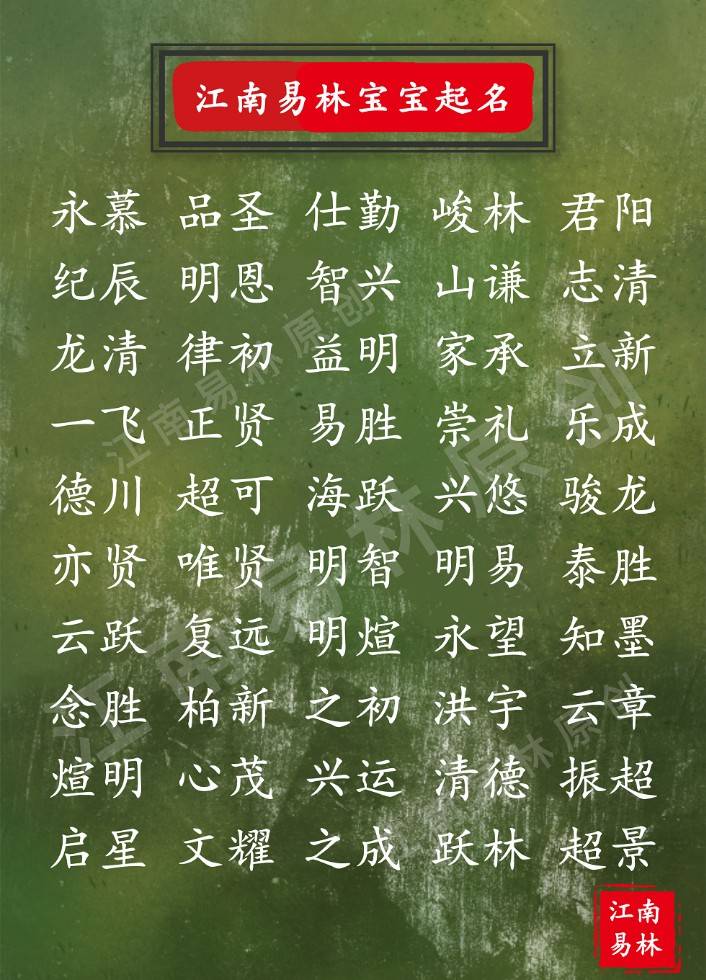 江南易林宝宝起名
永慕 品圣 仕勤 峻林 君阳
纪辰 明恩 智兴 山谦 志清
龙清 律初 益明 家承 立新
一飞 正贤 易胜 崇礼 乐成
德川 超可 海跃 兴悠 骏龙
亦贤 唯贤 明智 明易 泰胜
云跃 复远 明煊 永望 知墨
念胜 柏新 之初 洪宇 云章
煊明 心茂 兴运 清德 振超
启星 文耀 之成 跃林 超景
江南易林原创
江南易林原创
林原创
江南
易林